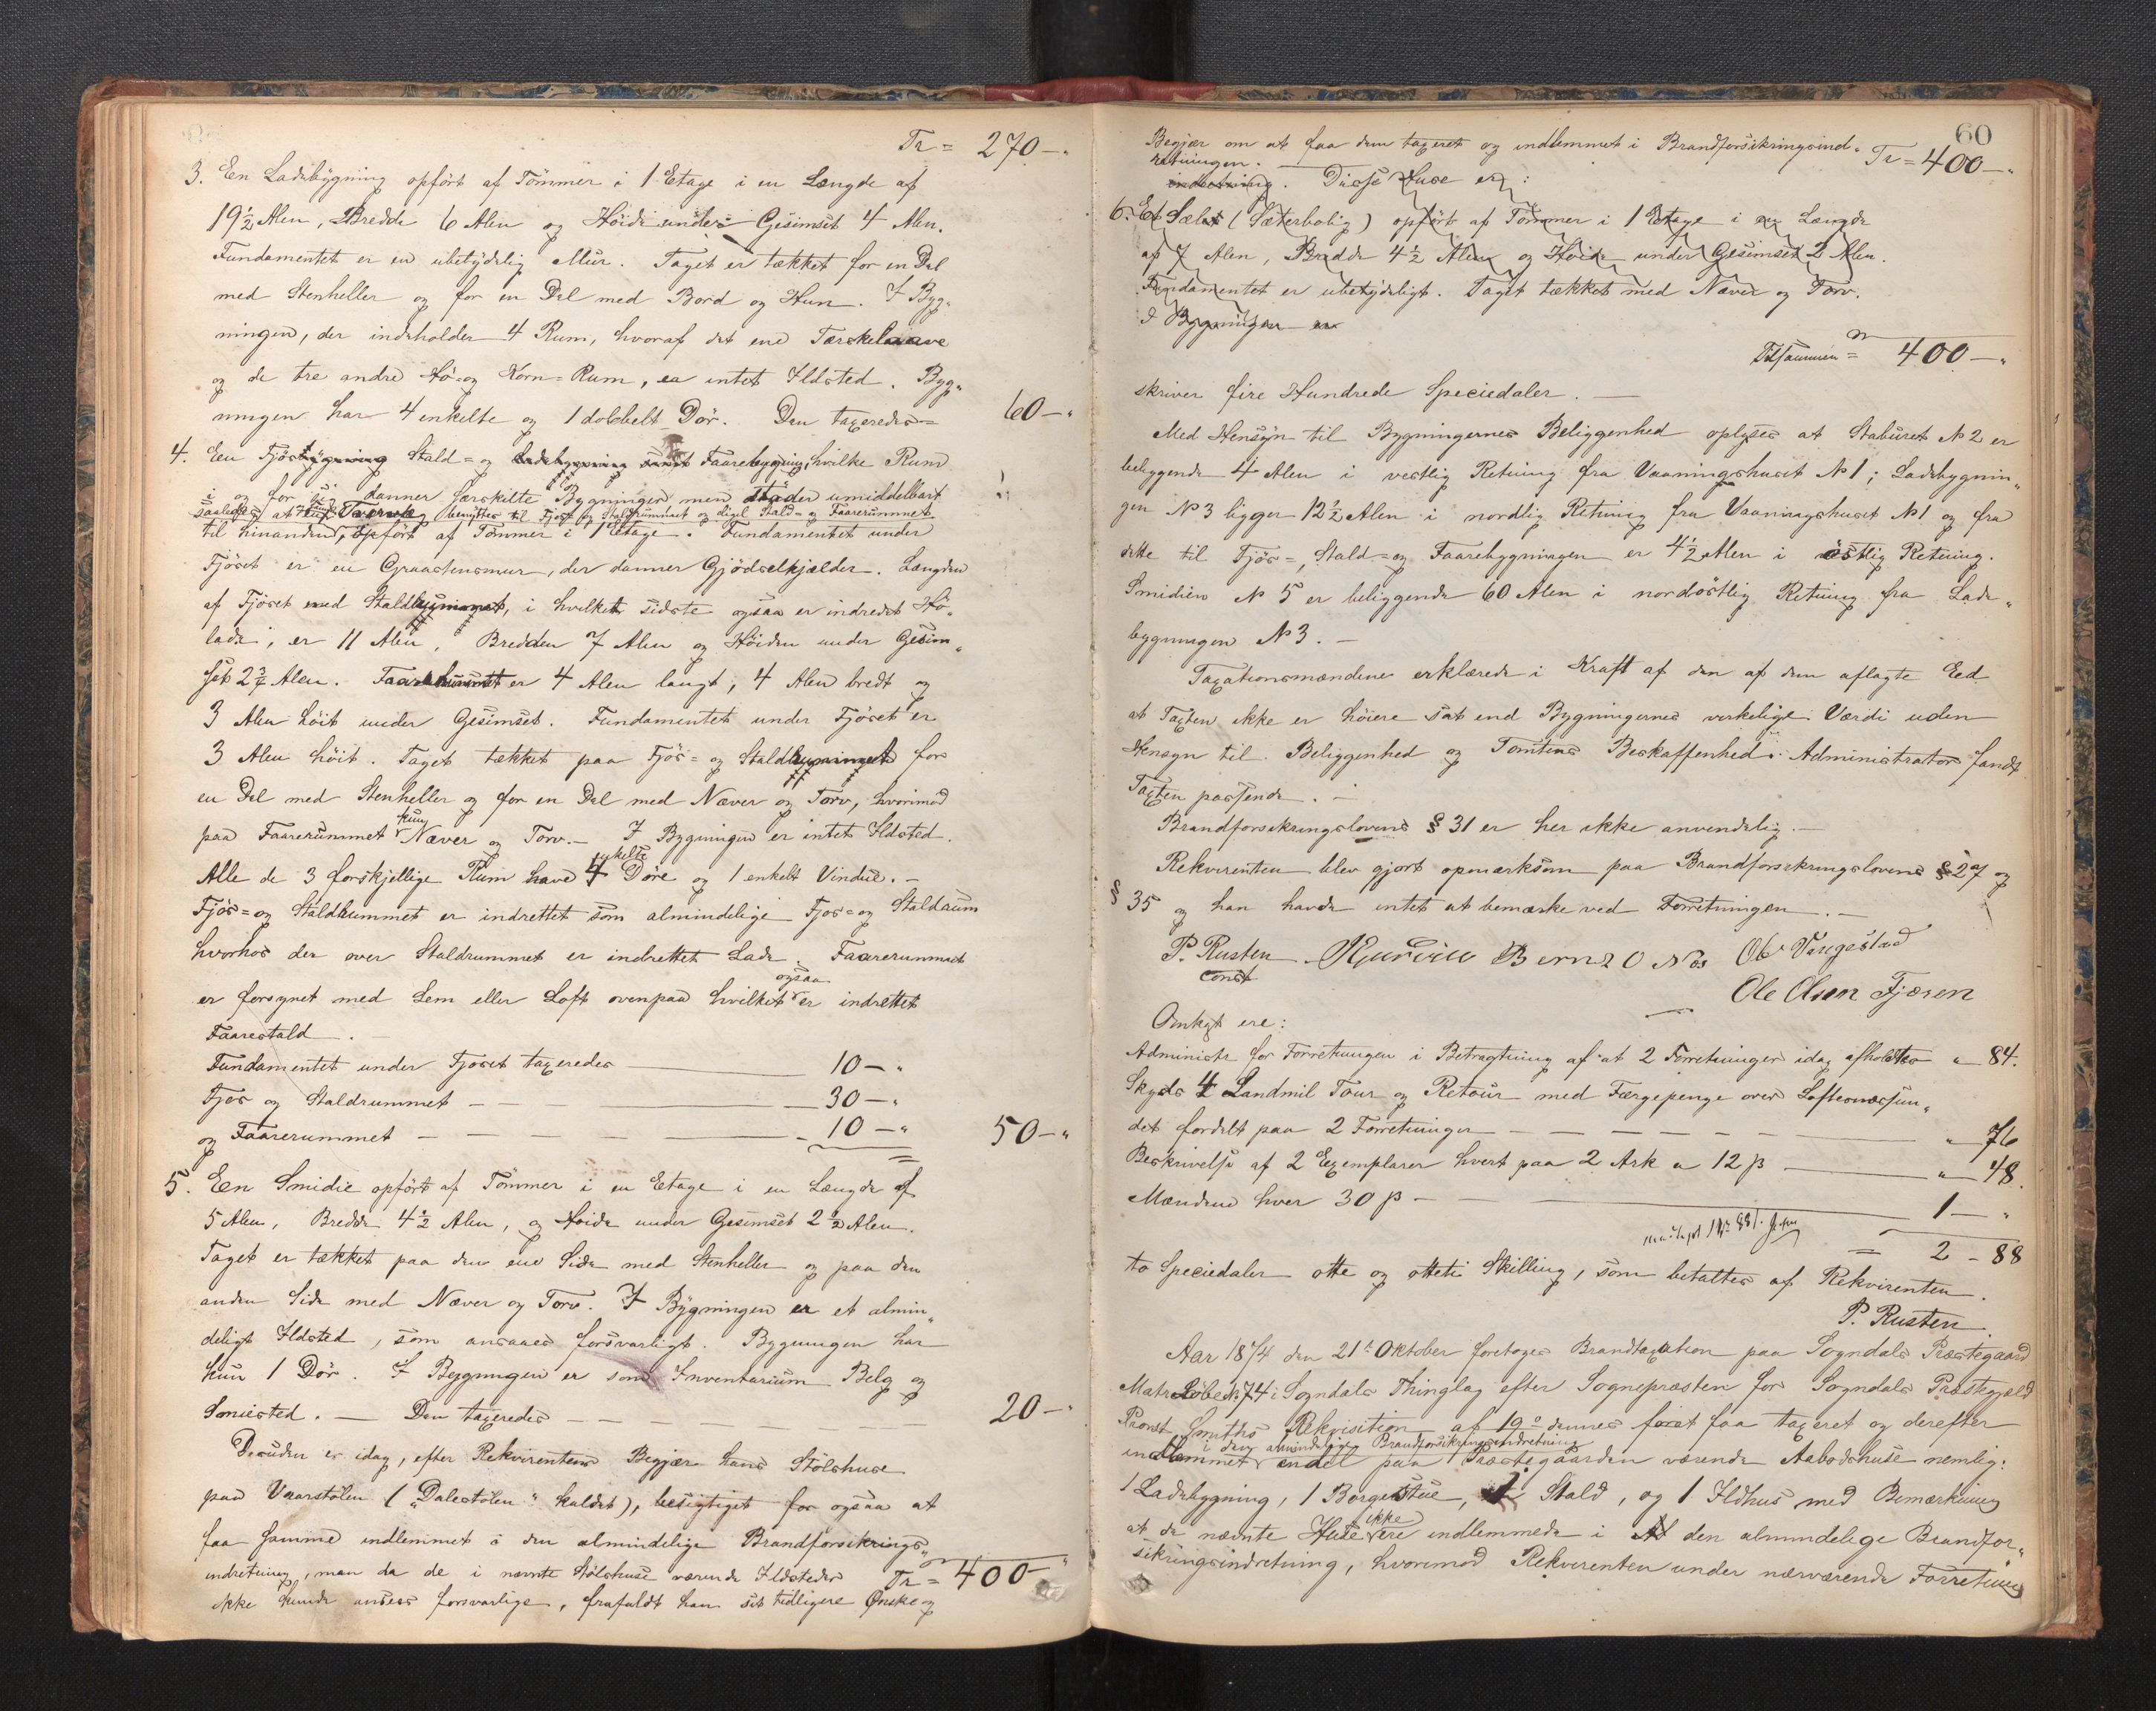 Tr = 270 – "
3. En Ladebygning opført af Tømmer i 1 Etage i en Længde af
19 1/2 Alen, Bredde 6 Alen og Høide under Gesimset 4 Alen.
Fundamentet er en ubetydelig Mur. Taget er tækket for en Del
med Stenheller og for en Del med Bord og Hun. I Byg-
ningen, der indeholder 4 Rum, hvoraf det ene Tærskelaave
og de tre andre Hø- og Korn-Rum, er intet Ildsted. Byg-
ningen har 4 enkelte og 1 dobbelt Dør. Den taxeredes = 60 – "
4. Een Fjøsbygning Stald- og Ladebygning samt Faarebygning, hvilke Rum
i og for sig danner særskilte Bygninger men støder umiddelbart
saaledes at benyttes til Fjøs og Staldrummet og ligel Stald- og Faarerummet
til hinanden, opført af Tømmer i 1 Etage. Fundamentet under
Fjøset er en Graastensmur, der danner Gjødselkjælder. Længden
af Fjøset med Staldrummet, i hvilket sidste ogsaa er indredet Hø-
lade, er 11 Alen, Bredden 7 Alen og Høiden under Gesim-
set 2 3/4 Alen. Faarerummet er 4 Alen langt, 4 Alen bredt og
3 Alen høit under Gesimset. Fundamentet under Fjøset er
3 Alen høit. Taget tækket paa Fjøs- og Staldrummet for
en Del med Stenheller og for en Del med Næver og Torv, hvorimod
paa Faarerummet kun Næver og Torv. – I Bygningen er intet Ildsted.
Alle de 3 forskjellige Rum have 4 enkelte Døre og 1 enkelt Vindue. –
Fjøs- og Staldrummet er indrettet som almindelige Fjos- og Staldrum
hvorhos der over Staldrummet er indrettet Lade. Faarerummet
er forsynet med Lem eller Loft ovenpaa hvilket ogsaa er indrettet
Faarestald. –
Fundamentet under Fjøset taxeredes — 10 – "
Fjøs og Staldrummet — 30 – "
og Faarerummet — 10 – " 50 – "
5. Een Smidie opført af Tømmer i en Etage i en Længde af
5 Alen, Bredde 4 1/2 Alen, og Høide under Gesimset 2 1/2 Alen.
Taget er tækket paa den ene Side med Stenheller og paa den
anden Side med Næver og Torv. I Bygningen er et almin-
deligt Ildsted, som ansaaes forsvarligt. Bygningen har
kun 1 Dør. I Bygningen er som Inventarium Belg og
Smiested. — Den taxeredes — 20 – "
Desuden er idag, efter Rekvirentens Begjær hans Stølshuse
paa Vaarstølen ("Dalestølen" kaldet), besigtiget for ogsaa at
faa samme indlemmet i den almindelige Brandforsikrings-
indretning, men da de i nævnte Stølshuse værende Ildsteder Tr = 400 – "
ikke kunde ansees forsvarlige, frafaldt han sit tidligere Ønske og
60
Begjær om at faa dem taxeret og indlemmet i Brandforsikringsind- Tr = 400 – "
retningen.
indretning. Disse Huse er:
6. Et Sælet (Sæterbolig) opført af Tømmer i 1 Etage i en Længde
af 7 Alen, Bredde 4 1/2 Alen og Høide under Gesimset 2 Alen.
Fundamentet er ubetydeligt. Taget tækket med Næver og Torv.
I Bygningen er
Tilsammen = 400 – "
skriver fire Hundrede Speciedaler. —
Med Hensyn til Bygningernes Beliggenhed oplyses at Staburet № 2 er
beliggende 4 Alen i vestlig Retning fra Vaaningshuset № 1; Ladebygnin-
gen № 3 ligger 12 1/2 Alen i nordlig Retning fra Vaaningshuset № 1 og fra
dette til Fjøs-, Stald- og Faarebygningen er 4 1/2 Alen i østlig Retning.
Smidien № 5 er beliggende 60 Alen i nordøstlig Retning fra Lade-
bygningen № 3. –
Taxationsmændene erklærede i Kraft af den af dem aflagte Eed
at Taxten ikke er høiere sat end Bygningernes virkelige Værdi uden
Hensyn til Beliggenhed og Tomtens Beskaffenhed. Administrator fandt
Taxten passende. –
Brandforsikringslovens § 31 er her ikke anvendelig. –
Rekvirenten blev gjort opmærksom paa Brandforsikringslovens § 27 og
§ 35 og han havde intet at bemærke ved Forretningen. –
P. Rusten
const
Ole Olsen Fjæren
Omkgt ere:
Administr for Forretningen i Betragtning af at 2 Forretninger idag afholdtes " – 84.
Skyds 4 Landmil Tour og Retour med Færgepenge over Loftesnæssun-
det fordelt paa 2 Forretninger — " – 76
Beskrivelse af 2 Exemplarer hvert paa 2 Ark a 12 ß — " – 48.
Mændene hver 30 ß — 1 – "
= 2 – 88
to Speciedaler otte og otteti Skilling, som betaltes af Rekvirenten.
P. Rusten
Aar 1874 den 21de Oktober foretoges Brandtaxation paa Sogndals Præstegaard
Matr Løbe № 74 i Sogndals Thinglag efter Sognepræsten for Sogndals Præstegjæld
Provst Smiths Rekvisition af 19de dennes for at faa taxeret og derefter
i den almindelige Brandforsikringsindretning
indlemmet endel paa Præstegaarden værende Aabodshuse nemlig:
1 Ladebygning, 1 Borgestue, 1 Stald, og 1 Ildhus med Bemærkning
at de nævnte Huse ikke ere indlemmede i den almindelige Brandfor-
sikringsindretning, hvorimod Rekvirenten under nærværende Forretning